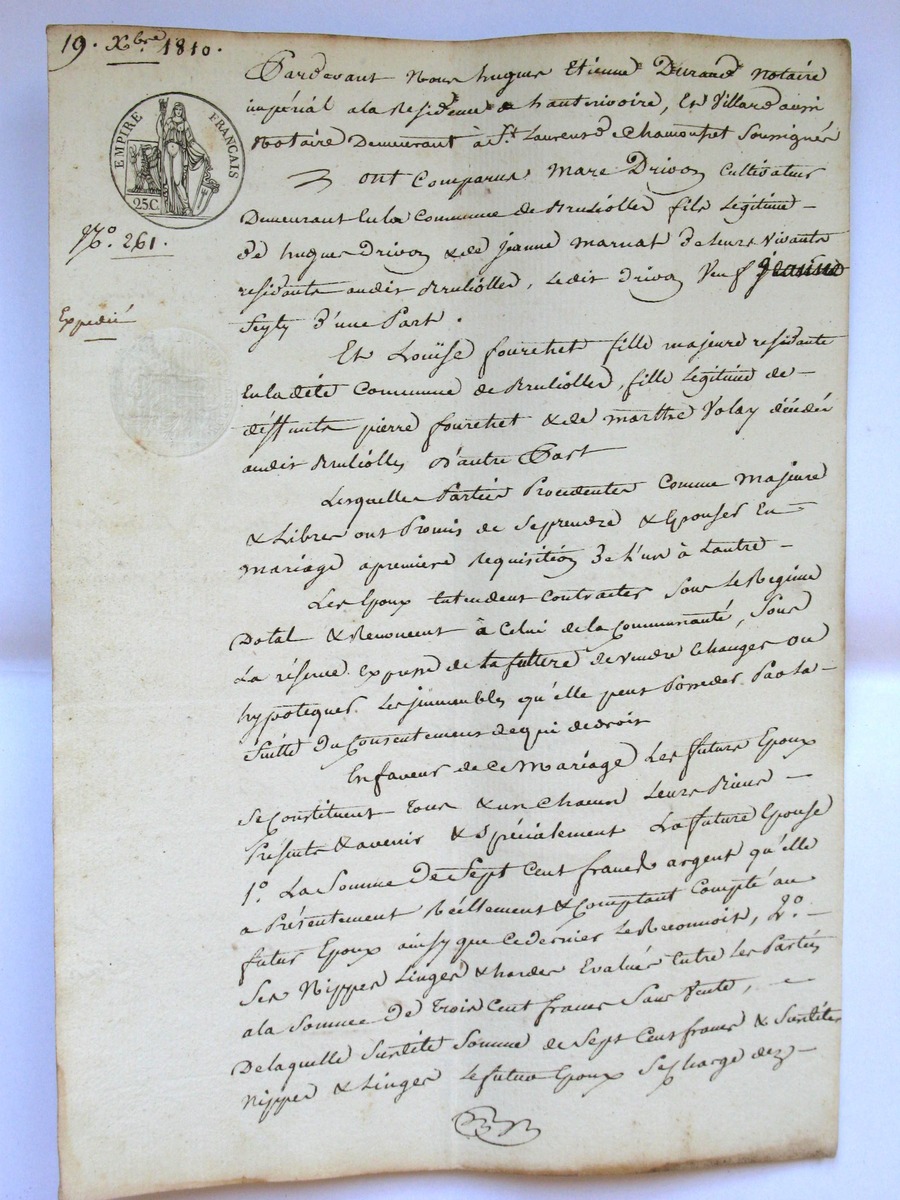 19. Xbre 1810.
EMPIRE FRANÇAIS
25C.
No. 261.
Expedié
Pardevant Nous hugues Etienne Durand Notaire
impérial a la Residence de hauterivoire, Et Villard aussi
Notaire Demeurant à St. Laurent de Chamousset Soussignés
ont Comparus Marc Drivon Cultivateur
Demeurant En la Commune de Brulliolles fils Legitime
de hugues Drivon & de jeanne Marnat de leurs vivants
residants audit Brullioles, Ledit Drivon Veuf
d'une Part.
Et Louïse fourchet fille majeure residante
En la dite Commune de Brullioles, fille Legitime de
deffunts pierre fourchet & de marthe Volay décédés
audit Brullioles D'autre Part
Lesquelles Parties Procedentes Comme Majeure
& Libres ont Promis de Se prendre & Epouser En
mariage a premiere Requisition de L'un à Lautre
Les Epoux Entendent Contracter Sous Le Regime
Dotal & Renoncent à Celui de la Communauté, Sous
La réserve Expresse de la future de vendre Echanger ou
hypotequer Les immeubles qu'elle peut Posseder Par la
Suitte du Consentement de qui de droit
En faveur de Ce Mariage Les futurs Epoux
Se Constituent Tous & un Chacun Leurs Biens
Présents & avenir & Spécialement La future Epouse
1o. La Somme de Sept Cent francs argent qu'elle
a Présentement Réellement & Comptant Compté au
futur Epoux ainsy que Ce dernier Le Reconnoit, 2o.
Ses Nippes Linges & hardes Evalués Entre Les Parties
a la Somme De Trois Cent francs Sans Vente,
De laquelle Susdite Somme de Sept Cent francs & Susdites
Nippes & Linges Le futur Epoux Se charge dez